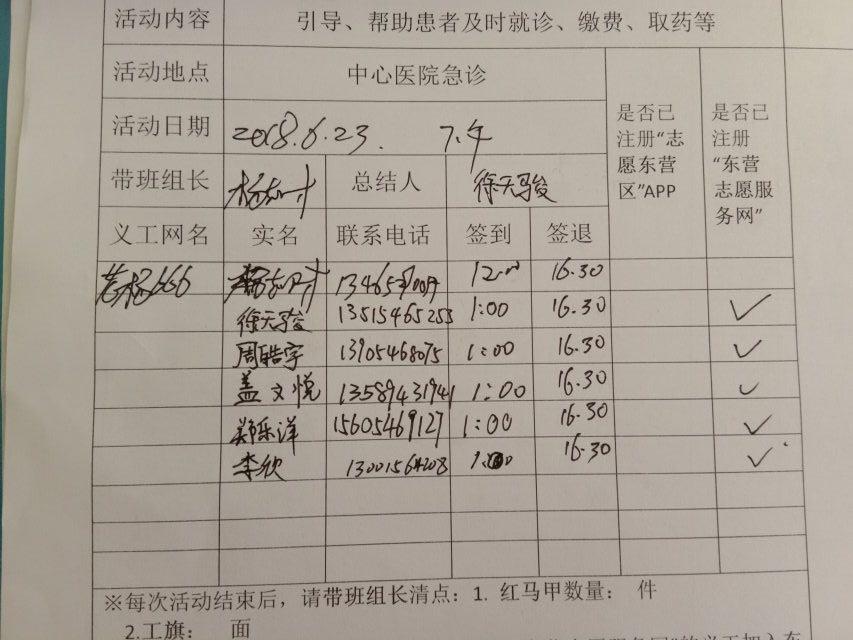 活动内容 引导、帮助患者及时就诊、缴费、取药等
活动地点 中心医院急诊
是否已注册“志愿东营区”APP
是否已注册“东营志愿服务网”
活动日期 2018.6.23. 下午
带班组长 总结人 徐天骏
义工网名 实名 联系电话 签到 签退
16.30
徐天骏 13515465255 1:00 16.30 ✓
周皓宇 13905468075 1:00 16.30 ✓
盖文悦 13589431941 1:00 16.30 ✓
郑乐洋 15605469127 1:00 16.30 ✓
李欣 13001564208 1:00 16.30 ✓
※每次活动结束后，请带班组长清点：1. 红马甲数量： 件
2.工旗： 面